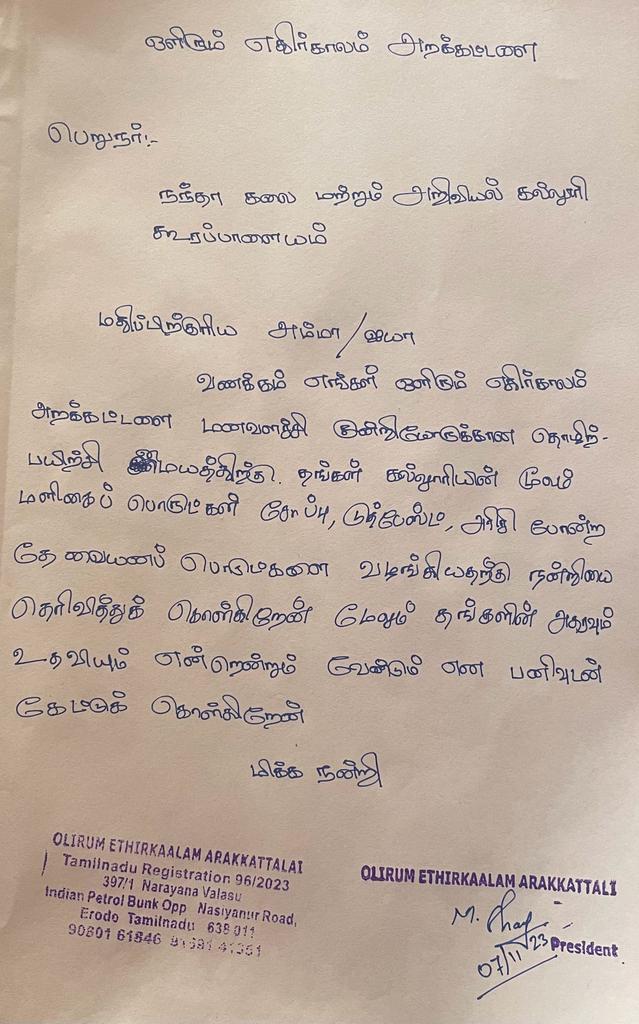 ஒளிரும் எதிர்காலம் அறக்கட்டளை
பெறுநர்:-
நந்தா கலை மற்றும் அறிவியல் கல்லூரி
கூரப்பாளையம்
மதிப்பிற்குரிய அம்மா/ஐயா
வணக்கம் எங்கள் ஒளிரும் எதிர்காலம்
அறக்கட்டளை மனவளர்ச்சி குன்றியோருக்கான தொழிற்-
பயிற்சி தங்கள் கல்லூரியின் மூலம்
மளிகைப் பொருட்கள் சோப்பு, டூத்பேஸ்ட், அரிசி போன்ற
தேவையானப் பொருட்களை வழங்கியதற்கு நன்றியை
தெரிவித்துக் கொள்கிறேன் மேலும் தங்களின் ஆதரவும்
உதவியும் என்றென்றும் வேண்டும் என பணிவுடன்
கேட்டுக் கொள்கிறேன்
மிக்க நன்றி
OLIRUM ETHIRKAALAM ARAKKATTALAI
Tamilnadu Registration 96/2023
397/1 Narayana Valasu
Indian Petrol Bunk Opp Nasiyanur Road,
Erode Tamilnadu 638 011
90801 61846
OLIRUM ETHIRKAALAM ARAKKATTALI
07/11/23
President